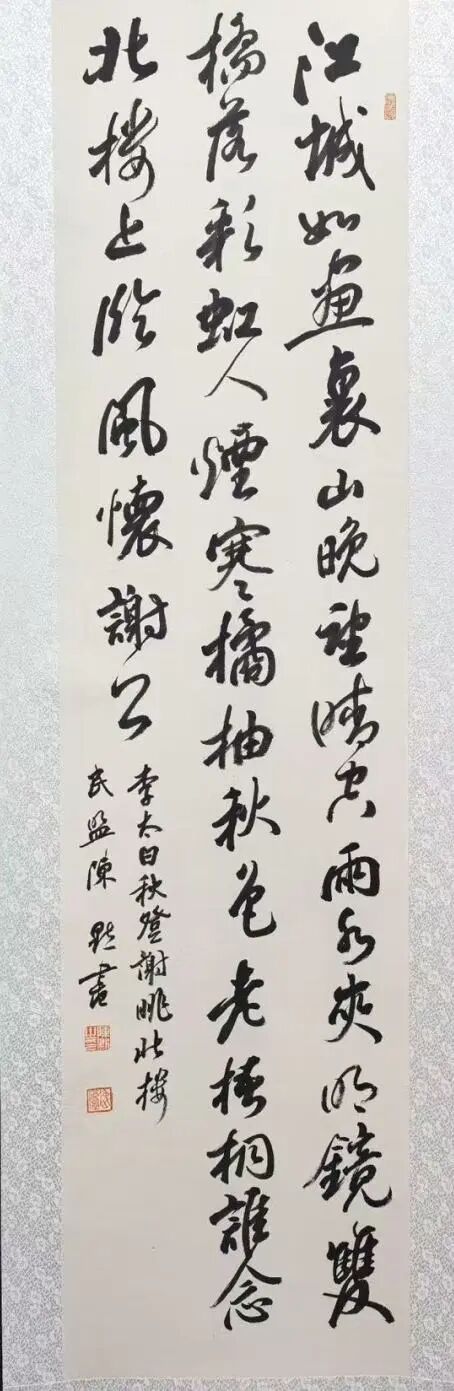 江城如畫裏山晚望晴空兩水夾明鏡雙
橋落彩虹人煙寒橘柚秋色老梧桐誰念
北樓上臨風懷謝公
李太白秋登謝眺北樓
民盟陳書